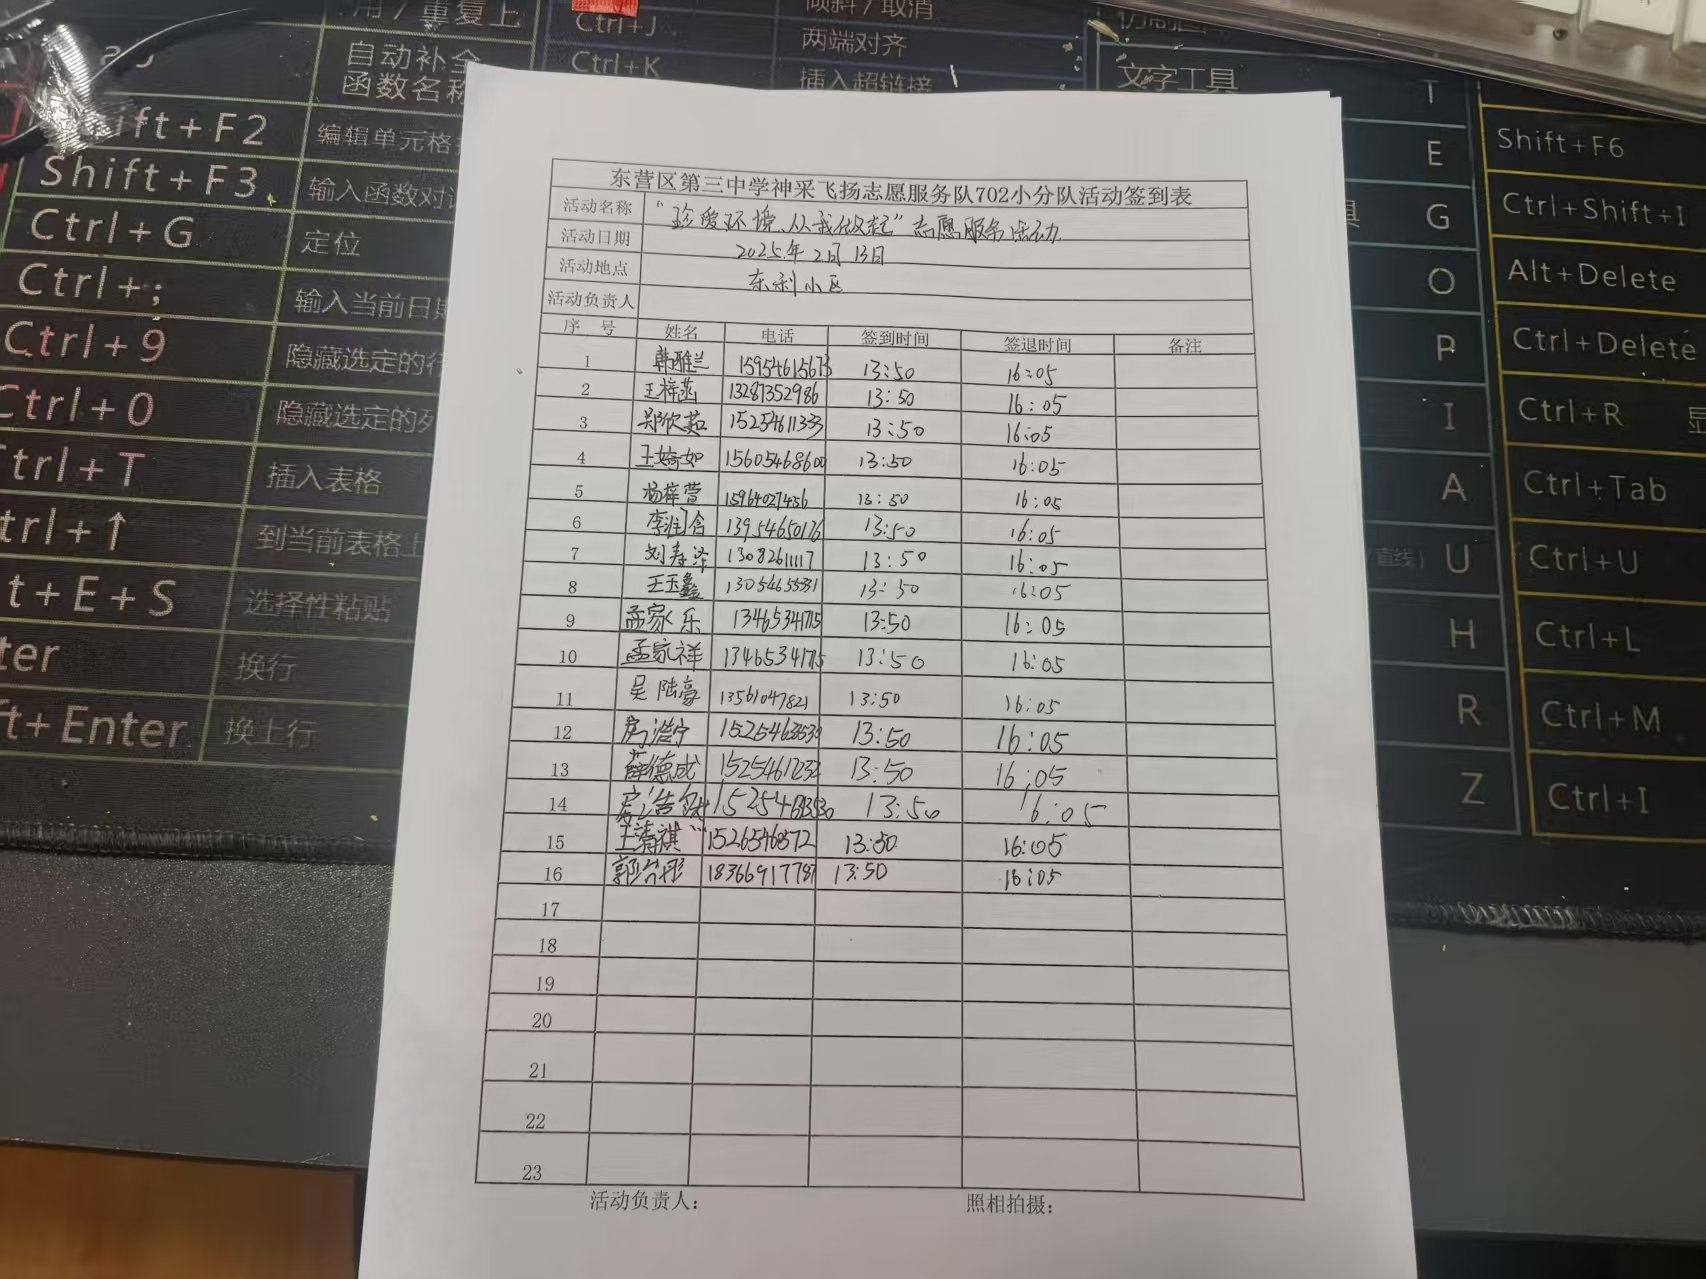 用/重复上
自动补全
函数名称
Shift+F2 编辑单元格
Shift+F3 输入函数对话
Ctrl+G 定位
Ctrl+; 输入当前日期
Ctrl+9 隐藏选定的行
Ctrl+0 隐藏选定的列
Ctrl+T 插入表格
trl+↑ 到当前表格上
t+E+S 选择性粘贴
ter 换行
ft+Enter 换上行
Ctrl+J 倾斜/取消
两端对齐
Ctrl+K 插入超链接
文字工具 T
E
G
O
P
I
A
(直线) U
H
R
Z
Shift+F6
Ctrl+Shift+I
Alt+Delete
Ctrl+Delete
Ctrl+R 显
Ctrl+Tab
Ctrl+U
Ctrl+L
Ctrl+M
Ctrl+I
东营区第三中学神采飞扬志愿服务队702小分队活动签到表
活动名称 “珍爱环境、从我做起”志愿服务活动
活动日期 2025年2月13日
活动地点 东利小区
活动负责人
序 号 姓名 电话 签到时间 签退时间 备注
1 韩雅兰 15954615673 13:50 16:05
2 王梓菡 13287352986 13:50 16:05
3 郑欣茹 15254611333 13:50 16:05
4 王婷如 15605468600 13:50 16:05
5 杨梓萱 15964027456 13:50 16:05
6 李润含 13954650176 13:50 16:05
7 刘寿泽 1308261117 13:50 16:05
8 王玉鑫 13054655531 13:50 16:05
9 孟家乐 13465341715 13:50 16:05
10 孟家祥 13465341715 13:50 16:05
11 吴陆豪 13561047821 13:50 16:05
12 房浩宁 13:50 16:05
13 薛德成 13:50 16:05
14 13:50 16:05
15 王清祺 13:50 16:05
16 18366917787 13:50 16:05
17
18
19
20
21
22
23
活动负责人： 照相拍摄：